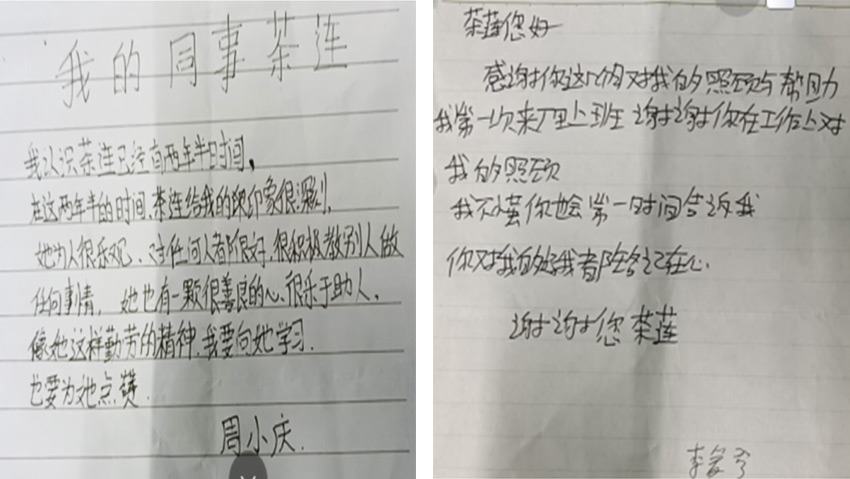 我的同事茶连
我认识茶连已经有两年半时间。
在这两年半的时间,茶连给我的印象很深刻,
她为人很乐观、对任何人都很好,很积极教别人做
任何事情,她也有一颗很善良的心、很乐于助人,
像她这样勤劳的精神,我要向她学习.
也要为她点赞.
周小庆.
茶莲您好
感谢你这几个月对我的照顾与帮助
我第一次来厂里上班 谢谢你在工作上对
我的照顾
我不懂你也会第一时间告诉我
你对我的好我都陪会记在心.
谢谢您茶莲
李